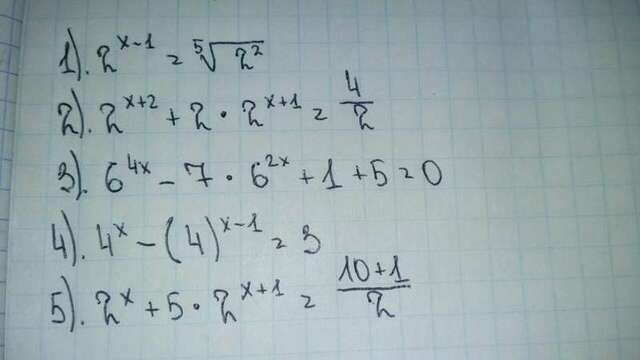 1). 2^(x-1) = ⁵√(2²)
2). 2^(x+2) + 2 · 2^(x+1) = 4/2
3). 6^(4x) - 7 · 6^(2x) + 1 + 5 = 0
4). 4^x - (4)^(x-1) = 3
5). 2^x + 5 · 2^(x+1) = (10+1)/2